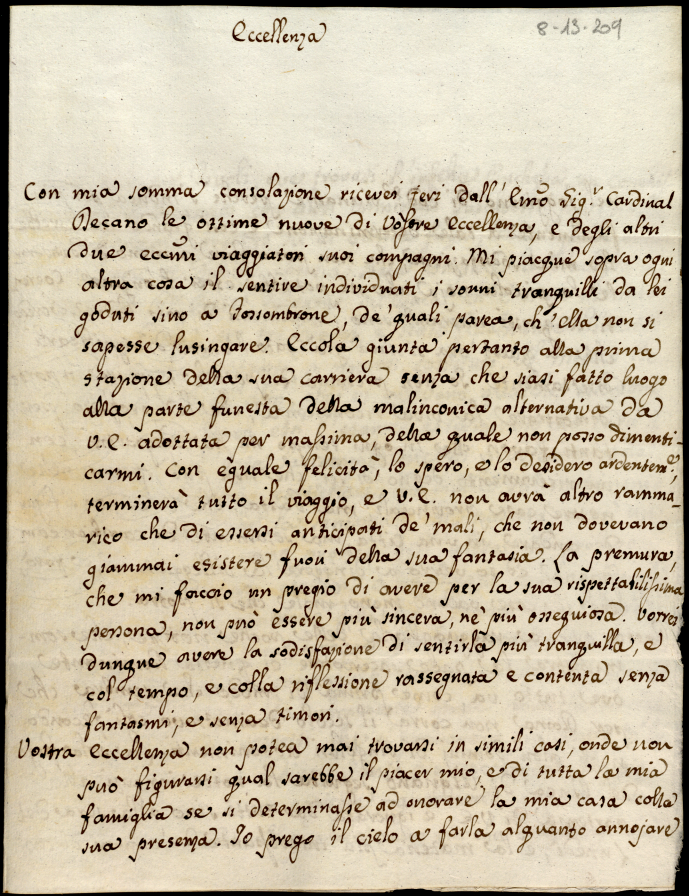 Eccellenza
8-13-209
Con mia somma consolazione ricevei jeri dall' Emo Sigr. Cardinal
Decano le ottime nuove di Vostra Eccellenza, e degli altri
due eccmi viaggiatori suoi compagni. Mi piacque sopra ogni
altra cosa il sentire individuati i sonni tranquilli da lei
goduti sino a Fossombrone, de' quali parea, ch'Ella non si
sapesse lusingare. Eccola giunta pertanto alla prima
stazione della sua carriera senza che siasi fatto luogo
alla parte funesta della malinconica alternativa da
V.E. adottata per massima, della quale non posso dimenti-
carmi. Con eguale felicità, lo spero, e lo desidero ardenteme,
terminerà tutto il viaggio, e V.E. non avrà altro ramma-
rico che di essersi anticipati de' mali, che non dovevano
giammai esistere fuori della sua fantasia. La premura,
che mi faccio un pregio di avere per la sua rispettabilissima
persona, non può essere più sincera, nè più ossequiosa. Vorrei
dunque avere la sodisfazione di sentirla più tranquilla, e
col tempo, e colla riflessione rassegnata e contenta senza
fantasmi, e senza timori.
Vostra Eccellenza non potea mai trovarsi in simili casi, onde non
può figurarsi qual sarebbe il piacer mio, e di tutta la mia
famiglia se si determinasse ad onorare la mia casa colla
sua presenza. Io prego il cielo a farla alquanto annojare